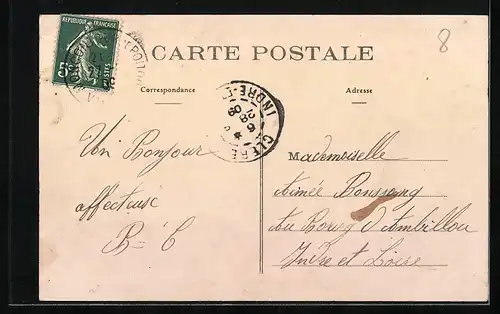 8
REPUBLIQUE FRANÇAISE
5c POSTES
CARTE POSTALE
Correspondance
Adresse
CLERE
INDRE-ET-
Un Bonjour
affectueuse
B = C
Mademoiselle
Aimée
Au Bourg d'Ambillou
Indre et Loire